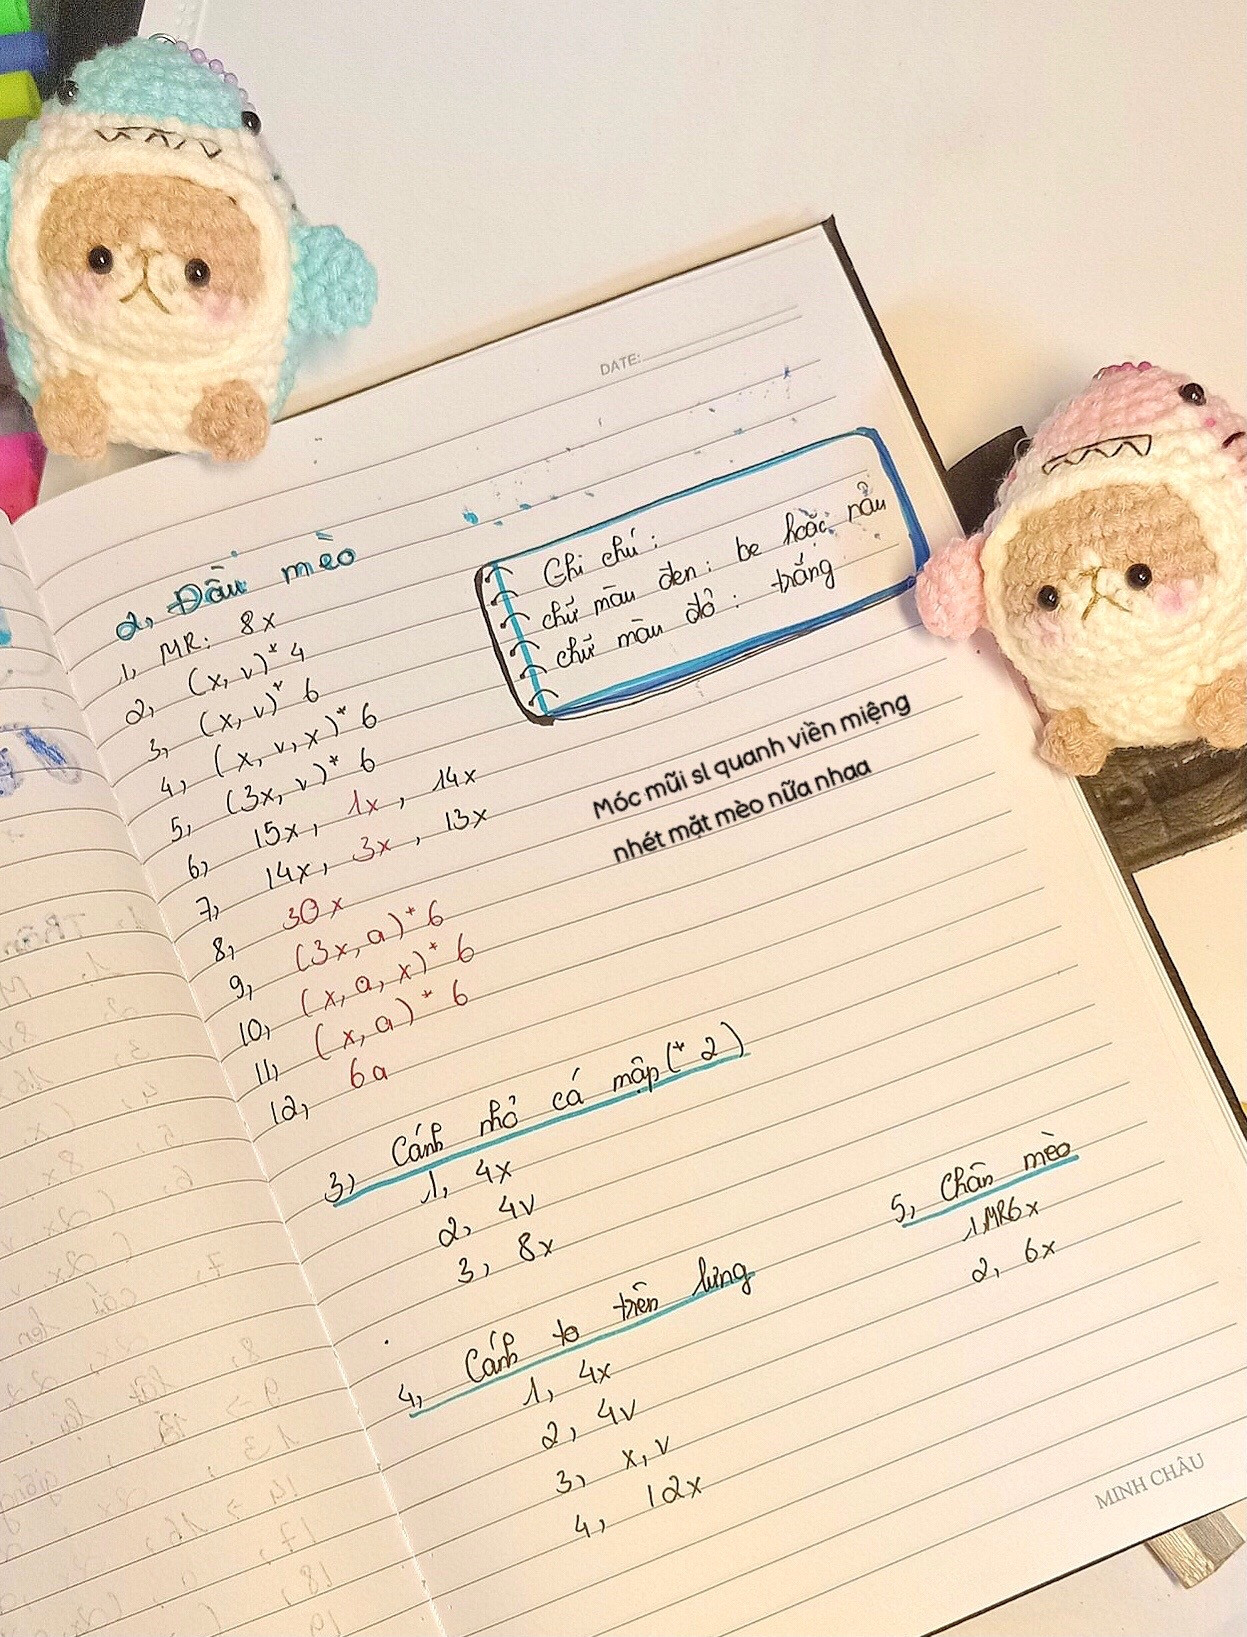 DATE:
2, Đầu mèo
1, MR: 8x
2, (x, v)* 4
3, (x, v)* 6
4, (x, v, x)* 6
5, (3x, v)* 6
6, 15x, 1x, 14x
7, 14x, 3x, 13x
8, 30x
9, (3x, a)* 6
10, (x, a, x)* 6
11, (x, a)* 6
12, 6a
Ghi chú:
chữ màu đen: be hoặc nâu
chữ màu đỏ: trắng
Móc mũi sl quanh viền miệng
nhét mặt mèo nữa nhaa
3, Cánh nhỏ cá mập (* 2)
1, 4x
2, 4v
3, 8x
4, Cánh to trên lưng
1, 4x
2, 4v
3, x, v
4, 12x
5, Chân mèo
1, MR6x
2, 6x
MINH CHÂU